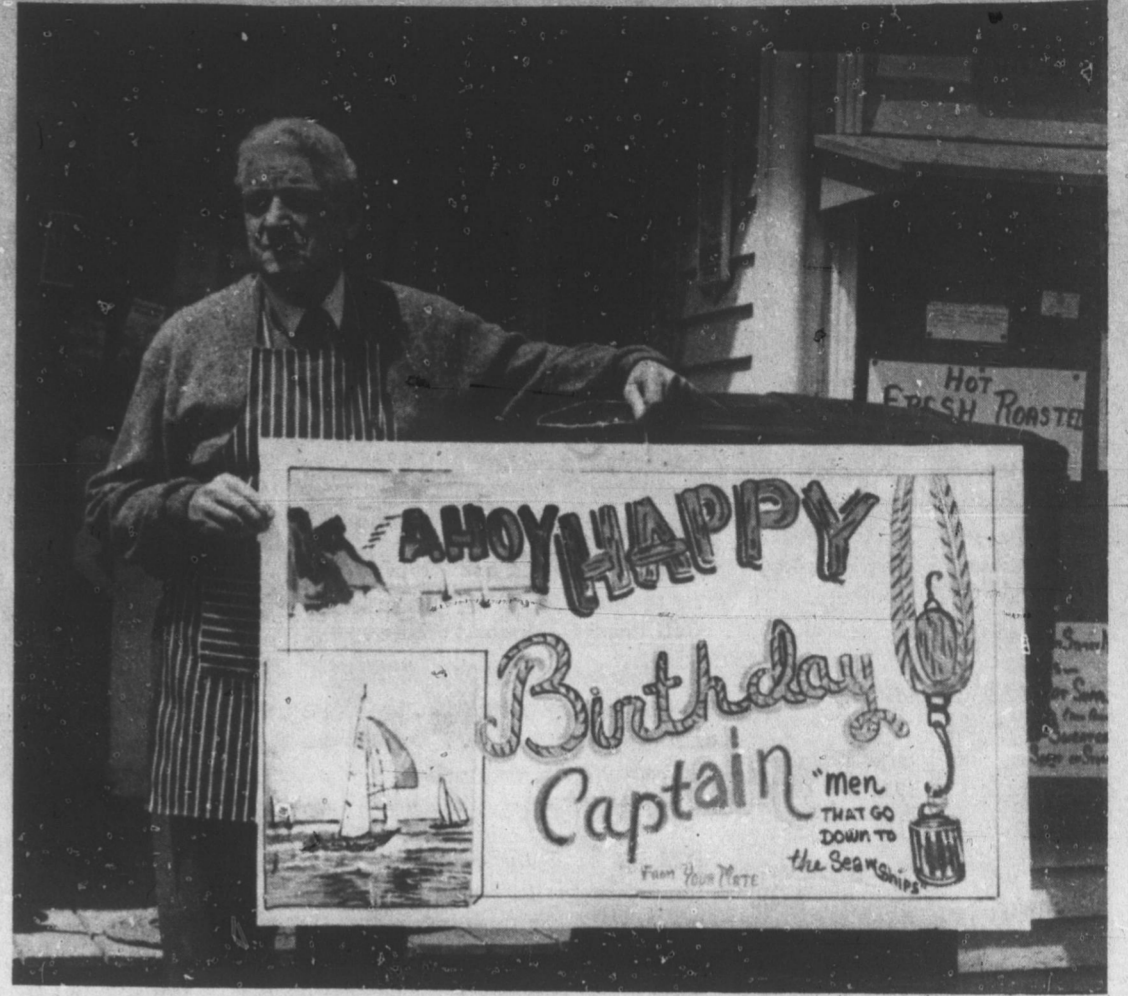 HOT
FRESH ROASTED
AHOY HAPPY
Birthday
Captain
"Men
THAT GO
DOWN TO
the Sea in
Ships"
From Your Mate